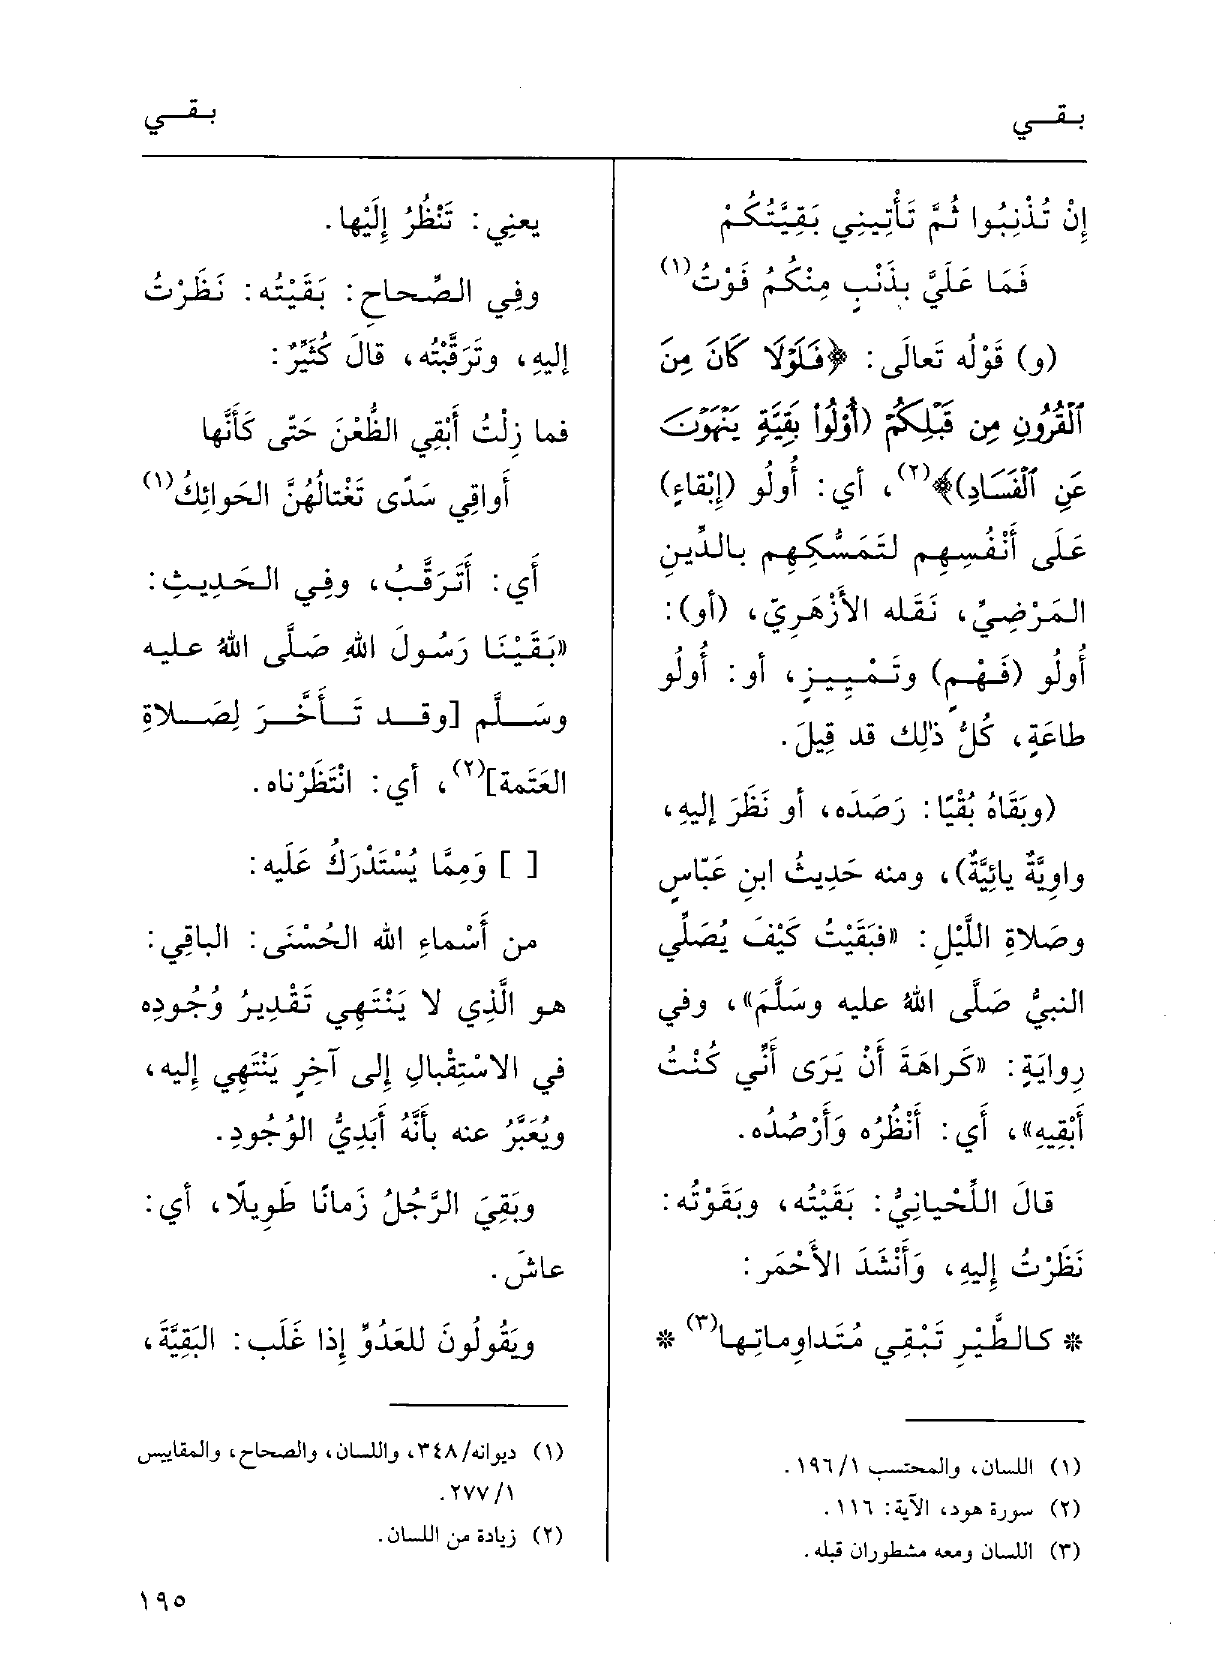 بـقـي
بـقـي
إِنْ تُذْنِبُوا ثُمَّ تَأْتِينِي بَقِيَّتُكُمْ
فَمَا عَلَيَّ بِذَنْبٍ مِنْكُمُ فَوْتُ(١)
(و) قَوْلُه تَعالَى: ﴿فَلَوْلَا كَانَ مِنَ
ٱلْقُرُونِ مِن قَبْلِكُمْ (أُوْلُوا۟ بَقِيَّةٍ يَنْهَوْنَ
عَنِ ٱلْفَسَادِ)﴾(٢)، أي: أُولُو (إِبْقاءٍ)
عَلَى أَنْفُسِهِم لتَمَسُّكِهِم بالدِّينِ
المَرْضِيِّ، نَقَله الأَزْهَرِيّ، (أو):
أُولُو (فَهْمٍ) وتَمْيِيزٍ، أو: أُولُو
طاعَةٍ، كُلُّ ذٰلِك قد قِيلَ.
(وبَقَاهُ بُقْيًا: رَصَدَه، أو نَظَرَ إليهِ،
واوِيَّةٌ يائِيَّةٌ)، ومنه حَدِيثُ ابنِ عَبّاسٍ
وصَلاةِ اللَّيْلِ: «فبَقَيْتُ كَيْفَ يُصَلِّي
النبيُّ صَلَّى اللهُ عليه وسَلَّمَ»، وفي
رِوايَةٍ: «كَراهَةَ أَنْ يَرَى أَنِّي كُنْتُ
أَبْقِيهِ»، أَي: أَنْظُرُه وَأَرْصُدُه.
قالَ اللِّحْيانِيُّ: بَقَيْتُه، وبَقَوْتُه:
نَظَرْتُ إِليهِ، وَأَنْشَدَ الأَحْمَر:
* كالطَّيْرِ تَبْقِي مُتَداوِماتِها(٣) *
(١) اللسان، والمحتسب ١/ ١٩٦.
(٢) سورة هود، الآية: ١١٦.
(٣) اللسان ومعه مشطوران قبله.
يعنِي: تَنْظُرُ إِلَيْها.
وفِي الصِّحاحِ: بَقَيْتُه: نَظَرْتُ
إليهِ، وتَرَقَّبْتُه، قالَ كُثَيِّرٌ:
فما زِلْتُ أَبْقِي الظُّعْنَ حَتّى كَأَنَّها
أَواقِي سَدًى تَغْتالُهُنَّ الحَوائِكُ(١)
أَي: أَتَرَقَّبُ، وفِي الحَدِيثِ:
«بَقَيْنَا رَسُولَ اللهِ صَلَّى اللهُ عليه
وسَلَّم [وقد تَأَخَّرَ لِصَلاةِ
العَتَمة](٢)، أي: انْتَظَرْناه.
[ ] وَمِمَّا يُسْتَدْرَكُ عَلَيه:
من أَسْماءِ الله الحُسْنَى: الباقِي:
هو الَّذِي لا يَنْتَهِي تَقْدِيرُ وُجُودِه
في الاسْتِقْبالِ إِلى آخِرٍ يَنْتَهِي إِليه،
ويُعَبَّرُ عنه بأَنَّهُ أَبَدِيُّ الوُجُودِ.
وبَقِيَ الرَّجُلُ زَمانًا طَوِيلًا، أي:
عاشَ.
ويَقُولُونَ للعَدُوِّ إِذا غَلَب: البَقِيَّةَ،
(١) ديوانه/٣٤٨، واللسان، والصحاح، والمقاييس
١/ ٢٧٧.
(٢) زيادة من اللسان.
١٩٥